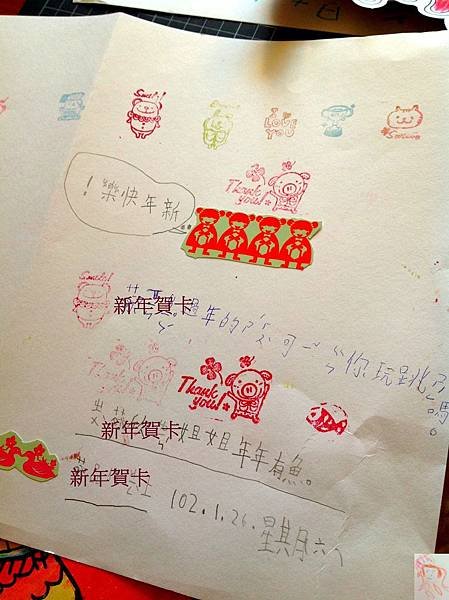 Smile!
I LOVE YOU
Thank you!
新年快樂！
Smile!
新年賀卡過年的
可一
你玩跳
嗎。
Thank you!
新年賀卡姐姐年年有魚。
新年賀卡
102.1.26.星期六